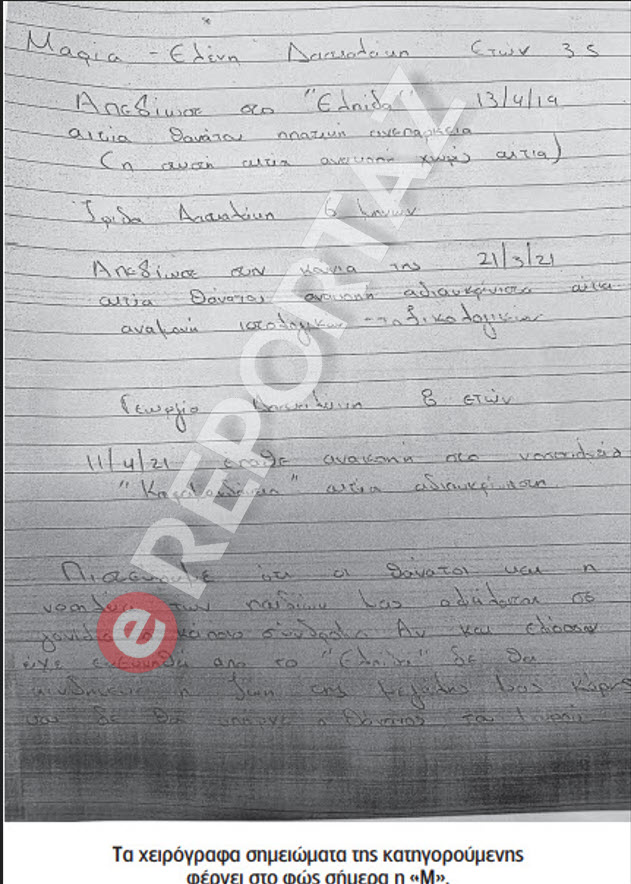 Μαρία - Ελένη Δασκαλάκη Ετών 3,5
Απεβίωσε στο "Ελπίδα" 13/4/19
αιτία θανάτου ηπατική ανεπάρκεια
(η αυτή αιτία ανακοπή χωρίς αιτία)
Ίριδα Δασκαλάκη 6 μηνών
Απεβίωσε στην κούνια της 21/3/21
αιτία θάνατου ανακοπή αδιευκρίνιστα αιτία
αναμονή ιστολογικών - τοξικολογικών
Γεωργία Δασκαλάκη 8 ετών
11/4/21 έπαθε ανακοπή στο νοσοκομείο
"Καραμανδάνειο" αιτία αδιευκρίνιστη
Πιστεύουμε ότι οι θάνατοι και η
των παιδιών μας οφείλεται σε
γονίδιο ή κάποιο σύνδρομο Αν και εφόσον
είχε από το "Ελπίδα" δε θα
κινδύνευε η ζωή της μεγάλης μας κόρης
και δε θα υπήρχε ο θάνατος του μωρού
eREPORTAZ
Τα χειρόγραφα σημειώματα της κατηγορούμενης
φέρνει στο φώς σήμερα η «Μ».